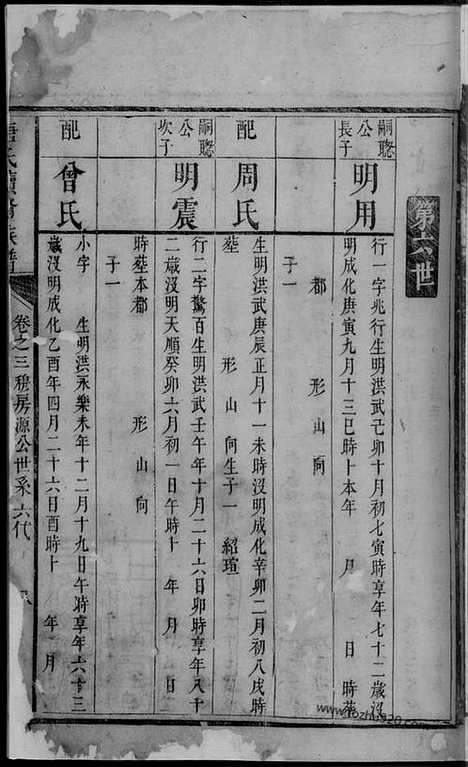 第六世
嗣聰公長子
明用
行一字兆行生明洪武己卯十月初七寅時享年七十二歲沒
明成化庚寅九月十三巳時卜本年 月 日 時葬
都 形 山 向
子一
配
周氏
生明洪武庚辰正月十一未時沒明成化辛卯二月初八戌時
塟 形 山 向生子一 紹瑄
嗣聰公次子
明震
行二字驚百生明洪武壬午年十月二十六日卯時享年八十
二歲沒明天順癸卯六月初一日午時卜 年 月 日
時塟本都 形 山 向
子一
配
曾氏
小字 生明洪永樂未年十二月十九日午時享年六十三
歲沒明成化乙酉年四月二十六日酉時卜 年 月
氏續脩族譜
卷之三穆房源公世系 六代